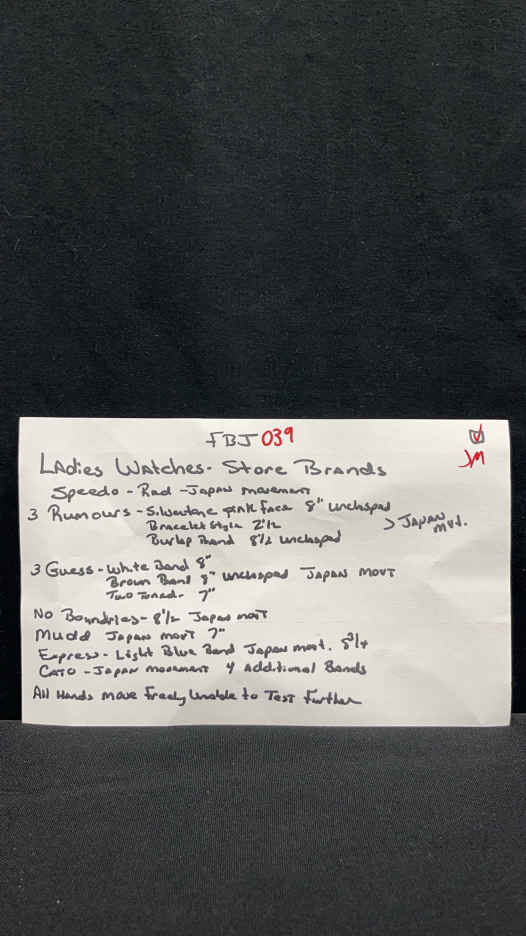 FBJ 039
JM
LAdies WAtches- Store Brands
Speedo - Red - Japan movement
3 Rumours - Silvertone pink face 8" unclasped
Bracelet Style 2 1/2
Burlap Band 8 1/2 unclasped
> JAPAN mvt.
3 Guess - White Band 8"
Brown Band 8" unclasped JAPAN MOVT
Two Toned - 7"
No Boundries - 8 1/2 Japan movT
Mudd Japan movT 7"
Express - Light Blue Band Japan movt. 8 3/4
CATO - JAPAN movement 4 Additional Bands
All Hands move freely Unable to Test Further